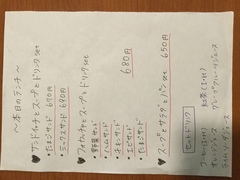 〜本日のランチ〜
♥サンドイッチとスープとドリンクset
・たまごサンド 670円
・ミックスサンド 690円
♥フォカッチャとスープとドリンクset
・野菜サンド
・ハムサンド
・チキンサンド
・エビサンド 680円
・たまごサンド
♥スープとサラダとパンset 650円
セットドリンク
コーヒー(I or H) 紅茶(I or H)
オレンジジュース グレープフルーツジュース
ライムソーダジュース